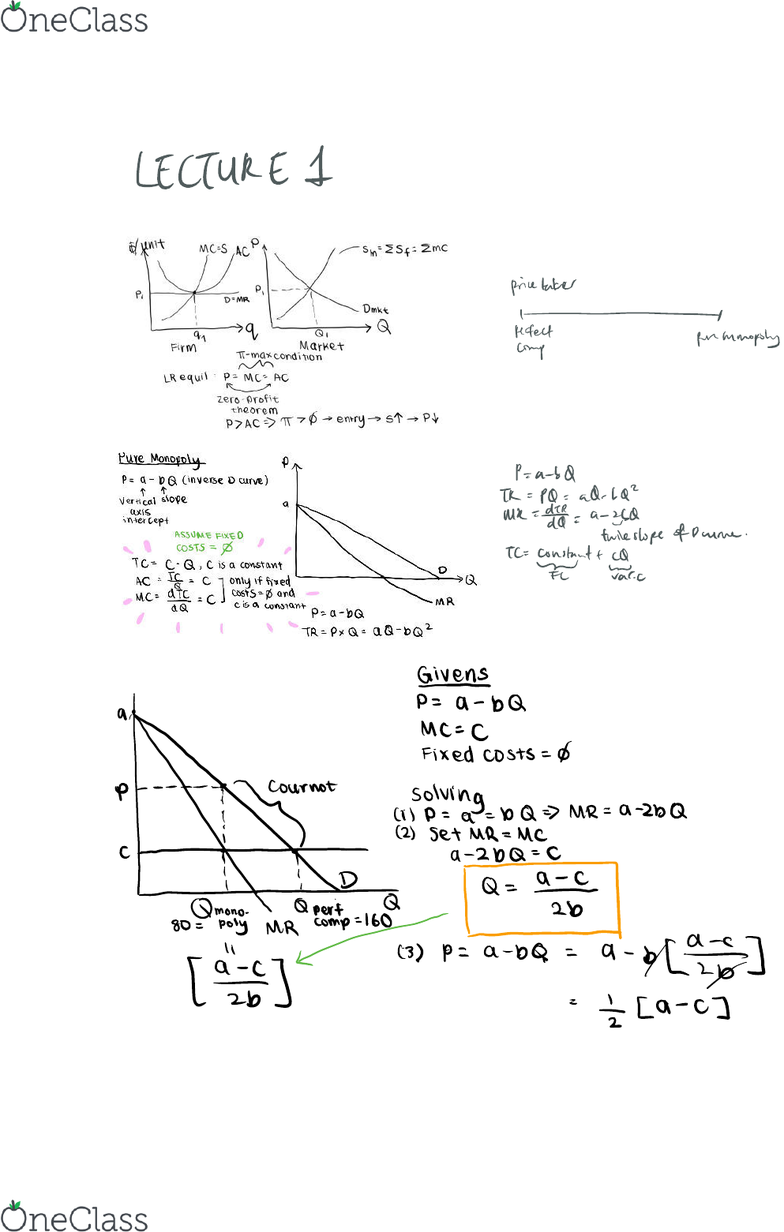 OneClass
LECTURE 1
$/unit
MC=S
AC
P₁
D=MR
q₁
q
Firm
P
Sm = ΣSf = Σmc
P₁
Dmkt
Q₁
Q
Market
π-max condition
LR equil: P = MC = AC
zero-profit
theorem
P > AC ⇒ π > ∅ → entry → S↑ → P↓
price taker
Perfect
comp
pure monopoly
Pure Monopoly
P = a - bQ (inverse D curve)
vertical slope
axis
intercept
ASSUME FIXED
COSTS = ∅
TC = C · Q, C is a constant
AC = TC/Q = C
MC = dTC/dQ = C
only if fixed
costs = ∅ and
c is a constant
P
a
D
Q
MR
P = a - bQ
TR = P x Q = aQ - bQ²
P = a - bQ
TR = PQ = aQ - bQ²
MR = dTR/dQ = a - 2bQ
twice slope of D curve.
TC = constant + cQ
FC
var.c
Givens
P = a - bQ
MC = C
Fixed costs = ∅
a
P
C
Cournot
D
Q
Q mono-
poly
80 =
MR
Q perf
comp = 160
"
[a-c / 2b]
Solving
(1) P = a = bQ ⇒ MR = a - 2bQ
(2) Set MR = MC
a - 2bQ = C
Q = a-c / 2b
(3) P = a - bQ = a - b[a-c / 2b]
= 1/2 [a-c]
OneClass